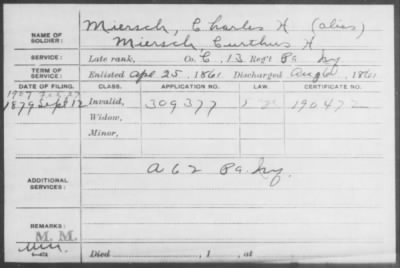 NAME OF SOLDIER: Miersch, Charles H (alias)
Miersch, Curthus H
SERVICE: Late rank, Co. C, 13 Reg't Pa
TERM OF SERVICE: Enlisted Apl 25, 1861 Discharged Aug 6, 1861
DATE OF FILING. CLASS. APPLICATION NO. LAW. CERTIFICATE NO.
1907
1879 Sept 12 Invalid, 309377 190472
Widow,
Minor,
ADDITIONAL SERVICES: A 62 Pa.
REMARKS:
M. M.
Died , 1 , at